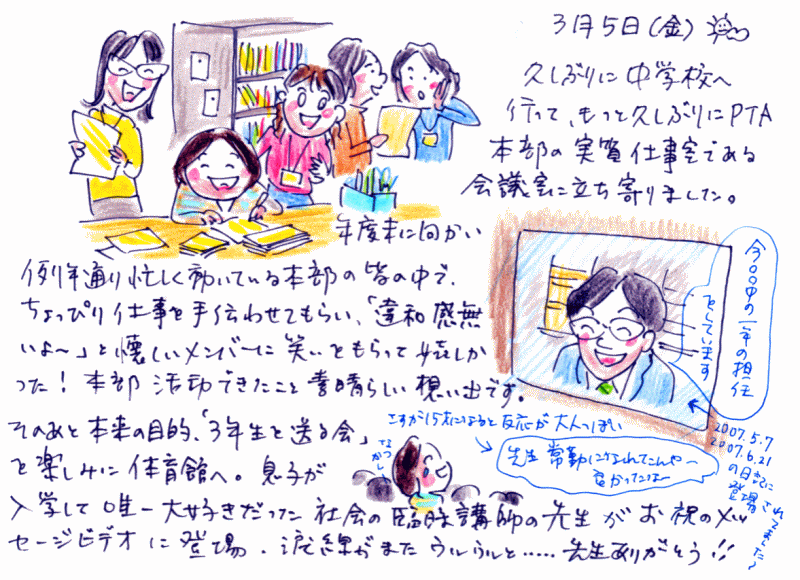 3月5日(金)
久しぶりに中学校へ
行って、もっと久しぶりにPTA
本部の実質仕事室である
会議室に立ち寄りました。
年度末に向かい
例年通り忙しく動いている本部の皆の中で、
ちょっぴり仕事を手伝わせてもらい、「違和感無
いよ〜」と懐しいメンバーに笑いをもらって嬉しか
った!本部活動できたこと素晴らしい想い出です。
そのあと本来の目的、「3年生を送る会」
を楽しみに体育館へ。息子が
入学して唯一大好きだった社会の臨時講師の先生がお祝のメッ
セージビデオに登場。涙線がまたウルウルと……先生ありがとう!!
今○○中の一年の担任
をしています
2007.5.7
2007.6.21
の日記に
登場されてました〜
さすが15才になると反応が大人っぽい
先生常勤になれてんや〜
良かったなー
なつかしい